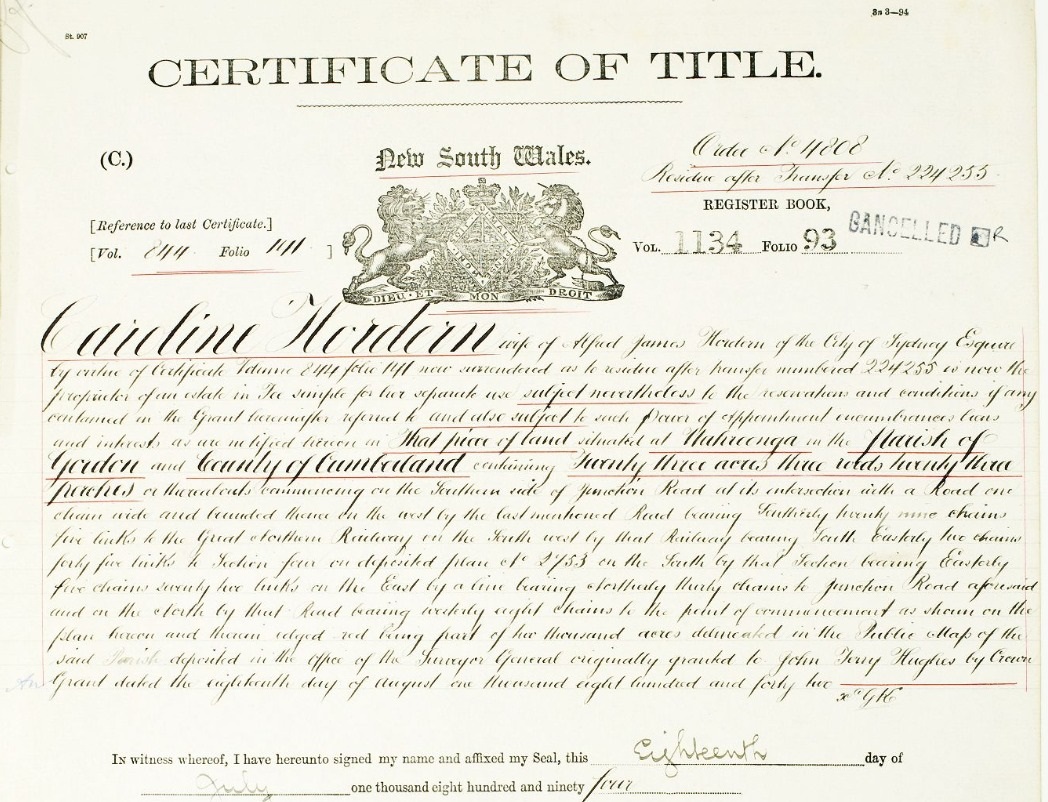 St. 907
3n 3—94
CERTIFICATE OF TITLE.
(C.)
New South Wales.
Order No 4808
Residue after Transfer No. 224255
REGISTER BOOK,
[Reference to last Certificate.]
[Vol. 844 Folio 141 ]
VOL. 1134 FOLIO 93
CANCELLED
DIEU·ET MON DROIT
Caroline Hordern wife of Alfred James Hordern of the City of Sydney Esquire
by virtue of Certificate Volume 844 folio 141 now surrendered as to residue after transfer numbered 224255 is now the
proprietor of an estate in Fee simple for her separate use subject nevertheless to the reservations and conditions if any
contained in the Grant hereinafter referred to and also subject to such power of appointment encumbrances liens
and interests as are notified hereon in That piece of land situated at Wahroonga in the Parish of
Gordon and County of Cumberland containing Twenty three acres three roods twenty three
perches or thereabouts commencing on the Southern side of Junction Road at its intersection with a Road one
chain wide and bounded thence on the west by the last mentioned Road bearing Southerly twenty nine chains
five links to the Great Northern Railway on the South west by that Railway bearing South Easterly two chains
forty five links to Section four on deposited plan No 2753 on the South by that Section bearing Easterly
five chains seventy two links on the East by a line bearing Northerly thirty chains to Junction Road aforesaid
and on the North by that Road bearing westerly eight chains to the point of commencement as shown on the
plan hereon and therein edged red being part of two thousand acres delineated in the Public Map of the
said Parish deposited in the office of the Surveyor General originally granted to John Terry Hughes by Crown
Grant dated the eighteenth day of August one thousand eight hundred and forty two
In witness whereof, I have hereunto signed my name and affixed my Seal, this Eighteenth day of
July one thousand eight hundred and ninety four